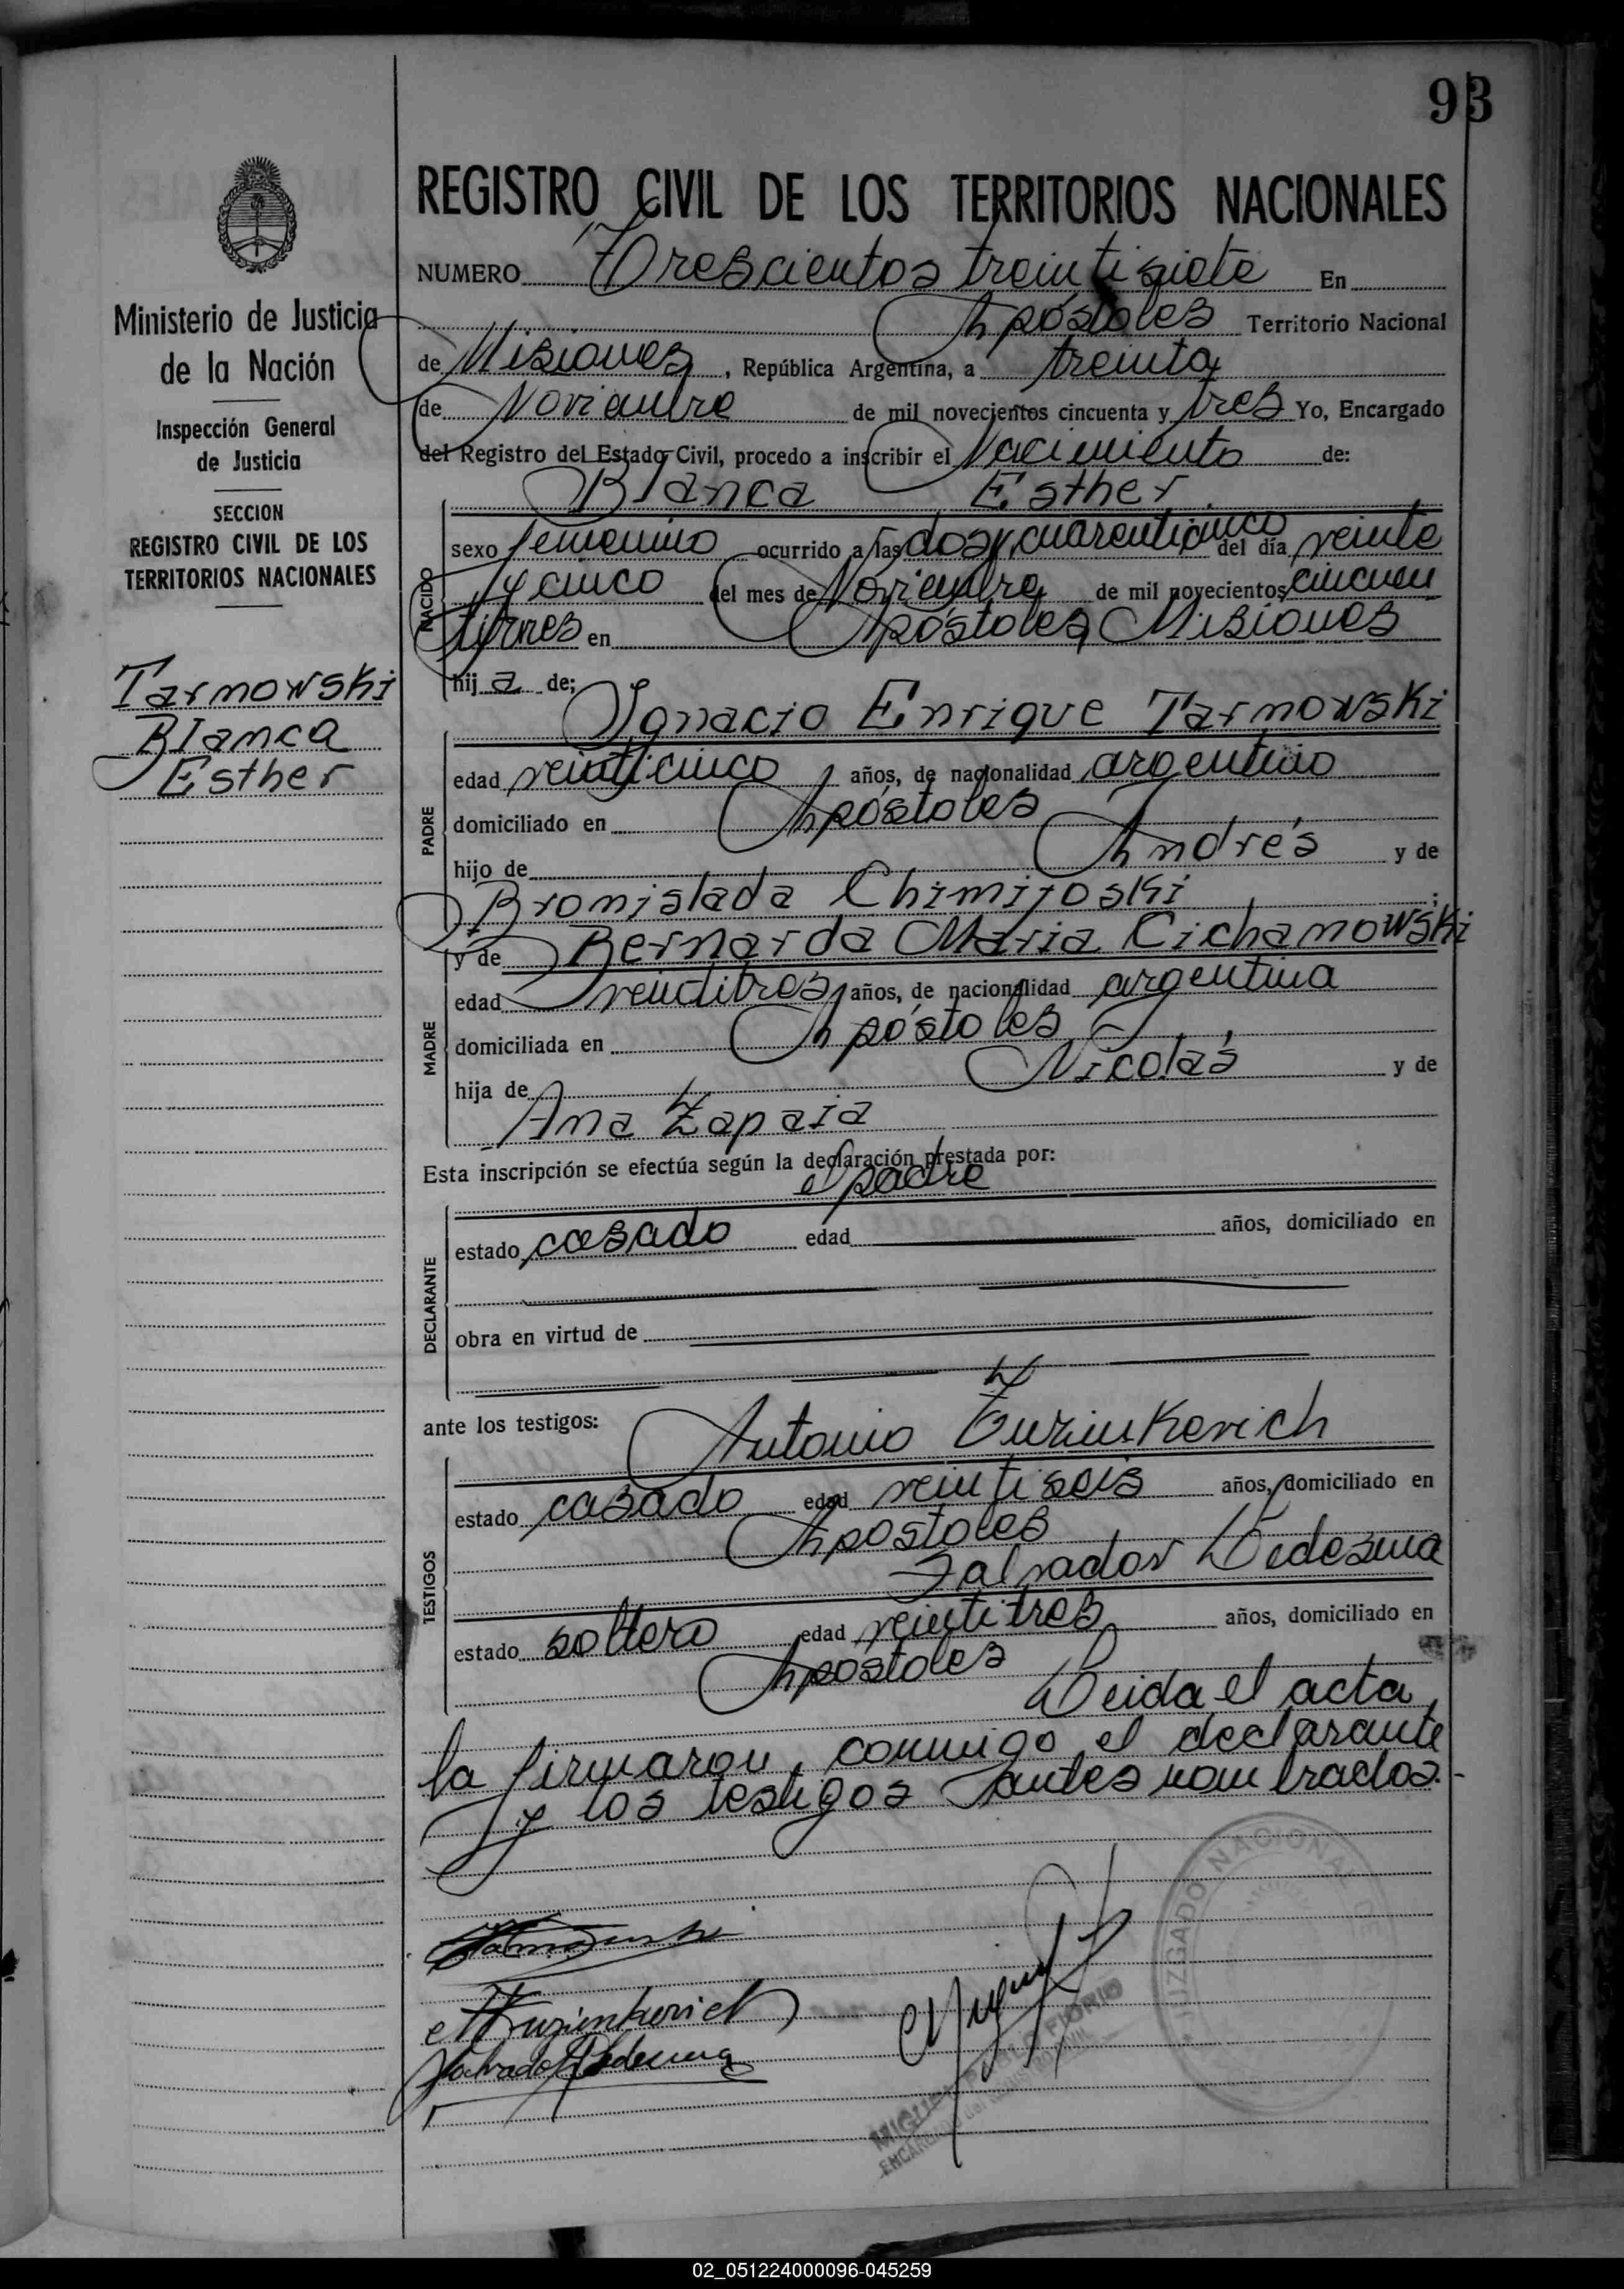 93
REGISTRO CIVIL DE LOS TERRITORIOS NACIONALES
NUMERO Trescientos treintisiete En
Apóstoles Territorio Nacional
de Misiones, República Argentina, a treinta
de Noviembre de mil novecientos cincuenta y tres Yo, Encargado
del Registro del Estado Civil, procedo a inscribir el Nacimiento de:
Blanca Esther
NACIDO
sexo femenino ocurrido a las dos y cuarenticinco del día veinte
y cinco del mes de Noviembre de mil novecientos cincuen
titres en Apóstoles, Misiones
hij a de:
Ignacio Enrique Tarnowski
PADRE
edad veinticinco años, de nacionalidad argentino
domiciliado en Apóstoles
hijo de Andrés y de
Bronislada
y de Bernarda María Cichanowski
MADRE
edad veintitres años, de nacionalidad argentina
domiciliada en Apóstoles
hija de Nicolás y de
Ana Zapaia
Esta inscripción se efectúa según la declaración prestada por:
el padre
DECLARANTE
estado casado edad años, domiciliado en
obra en virtud de
ante los testigos: Antonio Zuziukevich
TESTIGOS
estado casado edad veintiseis años, domiciliado en
Apostoles
Salvador Ledesma
estado soltero edad veintitres años, domiciliado en
Apostoles
Leida el acta,
la firmaron, conmigo el declarante
y los testigos antes nombrados.-
Ministerio de Justicia
de la Nación
Inspección General
de Justicia
SECCION
REGISTRO CIVIL DE LOS
TERRITORIOS NACIONALES
Tarnowski
Blanca
Esther
Salvador Ledesma
JUZGADO NACIONAL
02_051224000096-045259